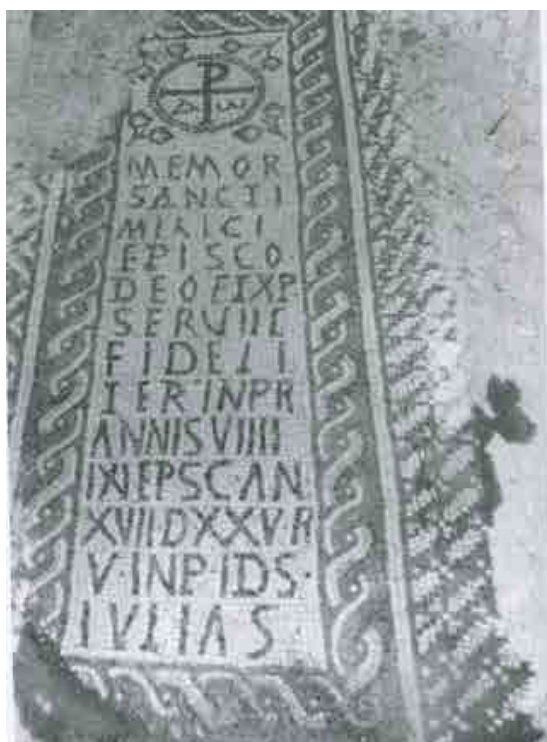 A ω
MEMOR
SANCTI
MIRICI
EPISCO
DEO ET XP
SERVIIT
FIDELI
TER IN PR
ANNIS VIIII
IN EPSC·AN
XVII D XXV R
V·IN P·IDS·
IVLIAS·